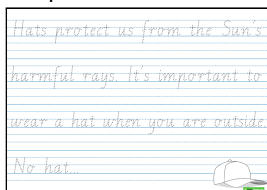 Hats protect us from the Sun's
harmful rays. It's important to
wear a hat when you are outside.
No hat...